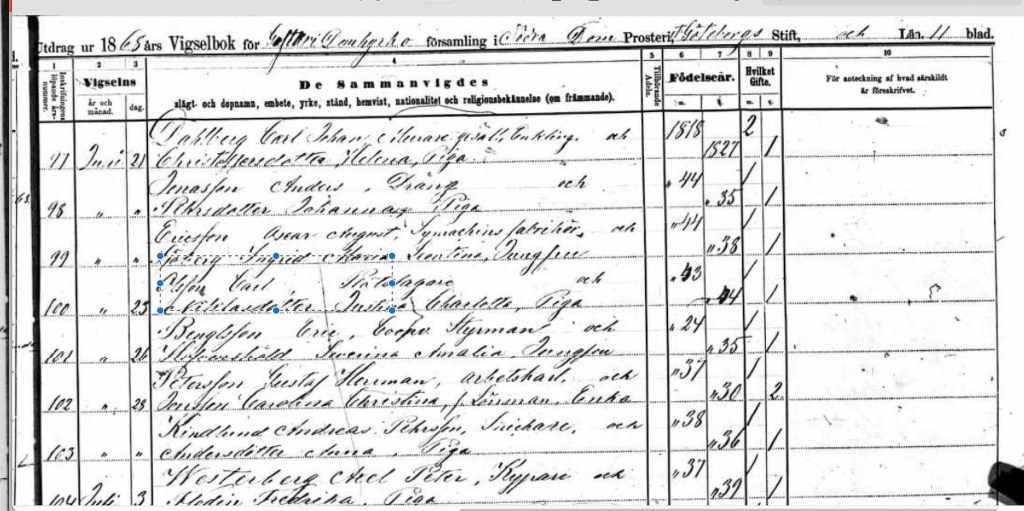 Utdrag ur 1868 års Vigselbok för Domkyrko församling i Södra Dom Prosteri, Göteborgs Stift, och Län. 11 blad.
1 2 3 4 5 6 7 8 9 10
Inskrifningens löpande års-nummer. Vigselns De Sammanvigdes Tillhörande Adeln. Födelseår. Hvilket Gifte. För anteckning af hvad särskildt
år och månad. dag. slägt- och dopnamn, embete, yrke, stånd, hemvist, nationalitet och religionsbekännelse (om främmande). m. q. m. q. är föreskrifvet.
Dahlberg Carl Johan Enkling, och 1818 2
97 Juni 21 Christoffersdotter Helena, Piga 1827 1
Jonasson Anders, Dräng och " 44 1
98 " " Pehrsdotter Johanna Piga " 35 1
Ericsson Oscar August, och " 44 1
99 " " Ingrid Maria Jungfru " 38 1
Olsson Carl, och " 43 1
100 " 23 Justina Charlotta, Piga " 44 1
Bengtsson Eric, Styrman och " 24 1
101 " 26 Severina Amalia, Jungfru " 35 1
Petersson Gustaf Herman, arbetskarl, och " 37 1
102 " 28 Jonsson Carolina Christina, Enka " 30 2
Kindlund Andreas Pehrsson, Snickare, och " 38 1
103 " " Andersdotter Anna, Piga " 36 1
Westerberg Axel Peter, Kypare och " 37 1
104 Juli 3 Fredrika, Piga " 39 1